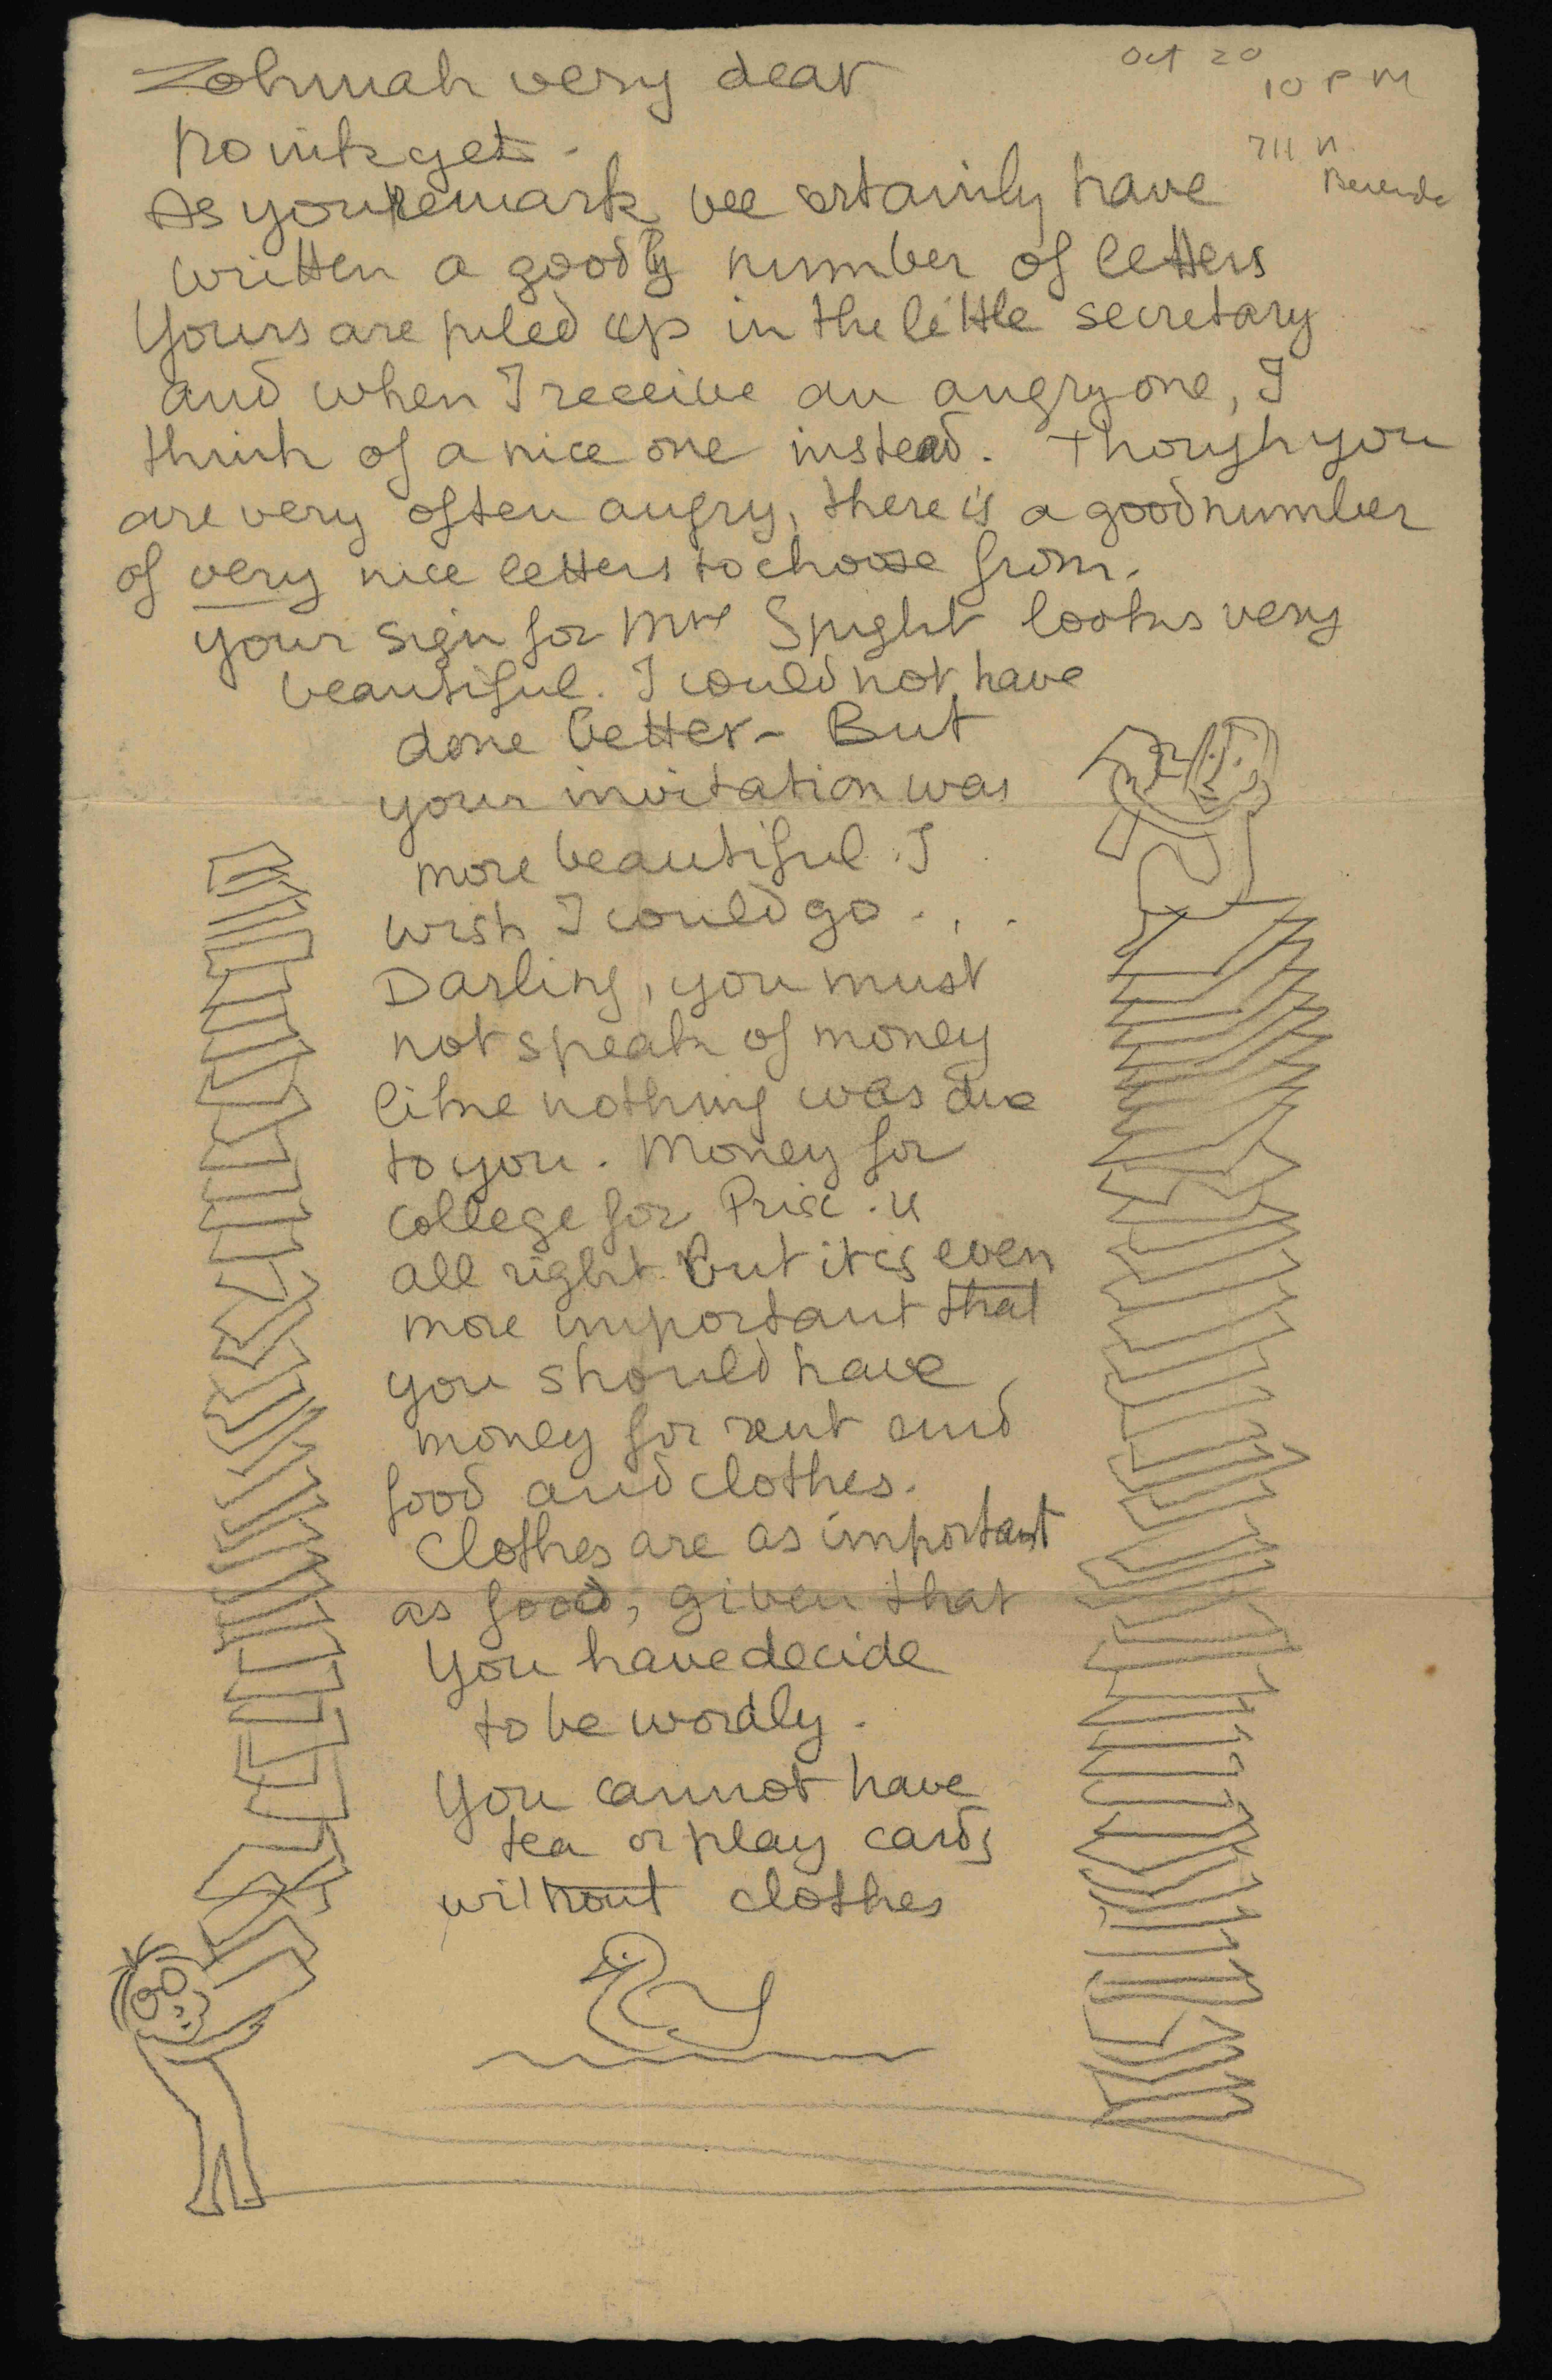 Zohmah very dear
Oct 20
10 P M
711 N.
No ink yet.
As you remark we certainly have
written a goodly number of letters
Yours are piled up in the little secretary
and when I receive an angry one, I
think of a nice one instead. Though you
are very often angry, there is a good number
of very nice letters to choose from.
your sign for Mrs Spight looks very
beautiful. I could not have
done better – But
your invitation was
more beautiful. I
wish I could go . . .
Darling, you must
not speak of money
like nothing was due
to you. Money for
college for Prix. is
all right but it is even
more important that
you should have
money for rent and
food and clothes.
Clothes are as important
as food, given that
You have decide
to be wordly.
You cannot have
tea or play cards
without clothes